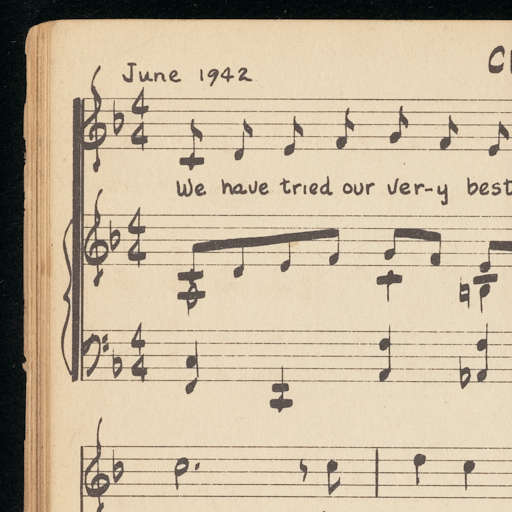 June 1942
4
4
We have tried our ver-y best
4
4
4
4